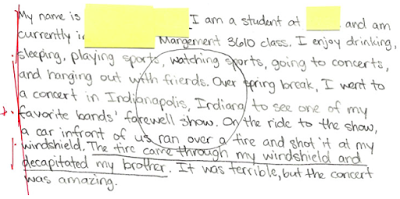 My name is I am a student at and am
currently in Mangement 3610 class. I enjoy drinking,
sleeping, playing sports, watching sports, going to concerts,
and hanging out with friends. Over spring break, I went to
a concert in Indianapolis, Indiana to see one of my
favorite bands' farewell show. On the ride to the show,
a car infront of us ran over a tire and shot it at my
windshield. The tire came through my windshield and
decapitated my brother. It was terrible, but the concert
was amazing.